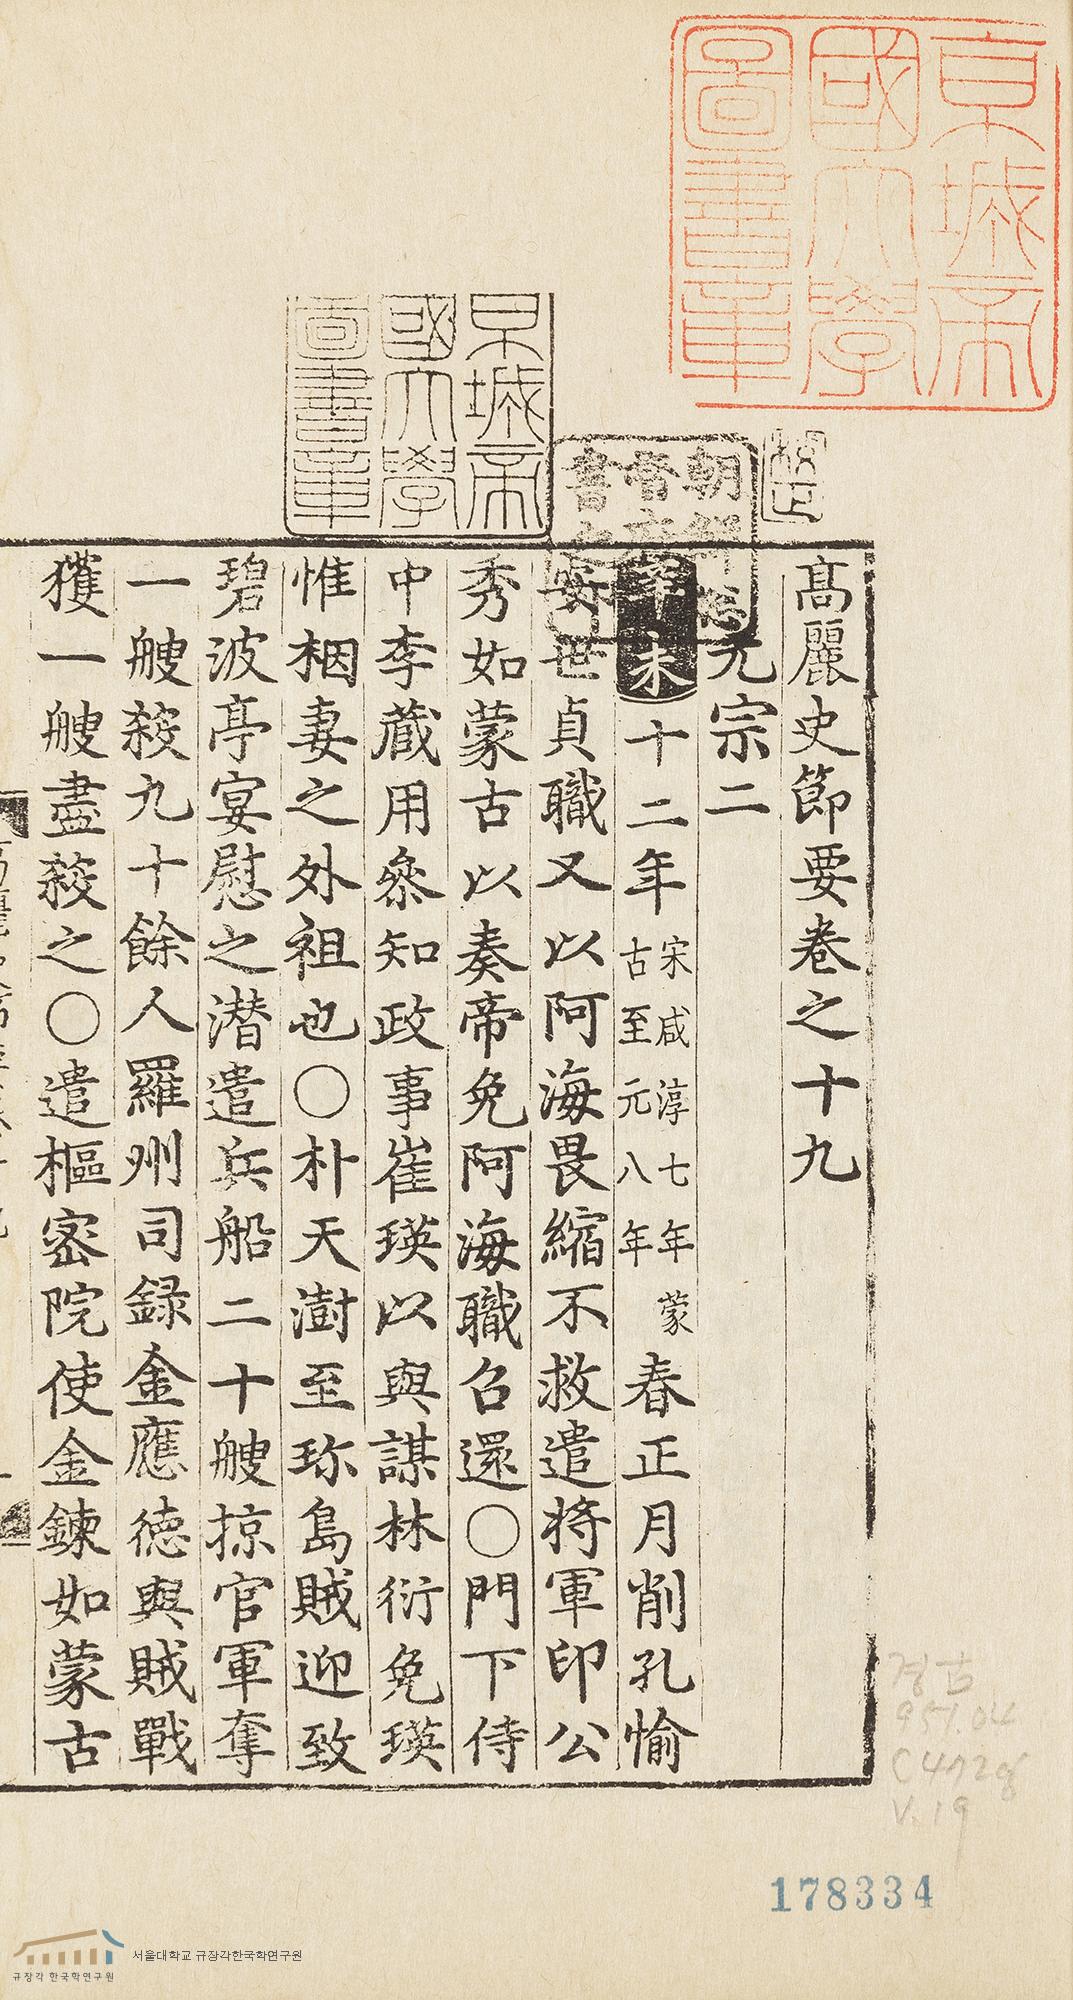 京城帝
國大學
圖書章
京城帝
國大學
圖書章
朝鮮
高麗史節要卷之十九
元宗二
辛未十二年宋咸淳七年蒙古至元八年春正月削孔愉
安世貞職又以阿海畏縮不救遣將軍印公
秀如蒙古以奏帝免阿海職召還〇門下侍
中李藏用叅知政事崔瑛以與謀林衍免瑛
惟栶妻之外祖也〇朴天澍至珎島賊迎致
碧波亭宴慰之潛遣兵船二十艘掠官軍奪
一艘殺九十餘人羅州司録金應德與賊戰
獲一艘盡殺之〇遣樞密院使金鍊如蒙古
경古
951.04
C472g
V.19
178334
규장각 한국학연구원
서울대학교 규장각한국학연구원